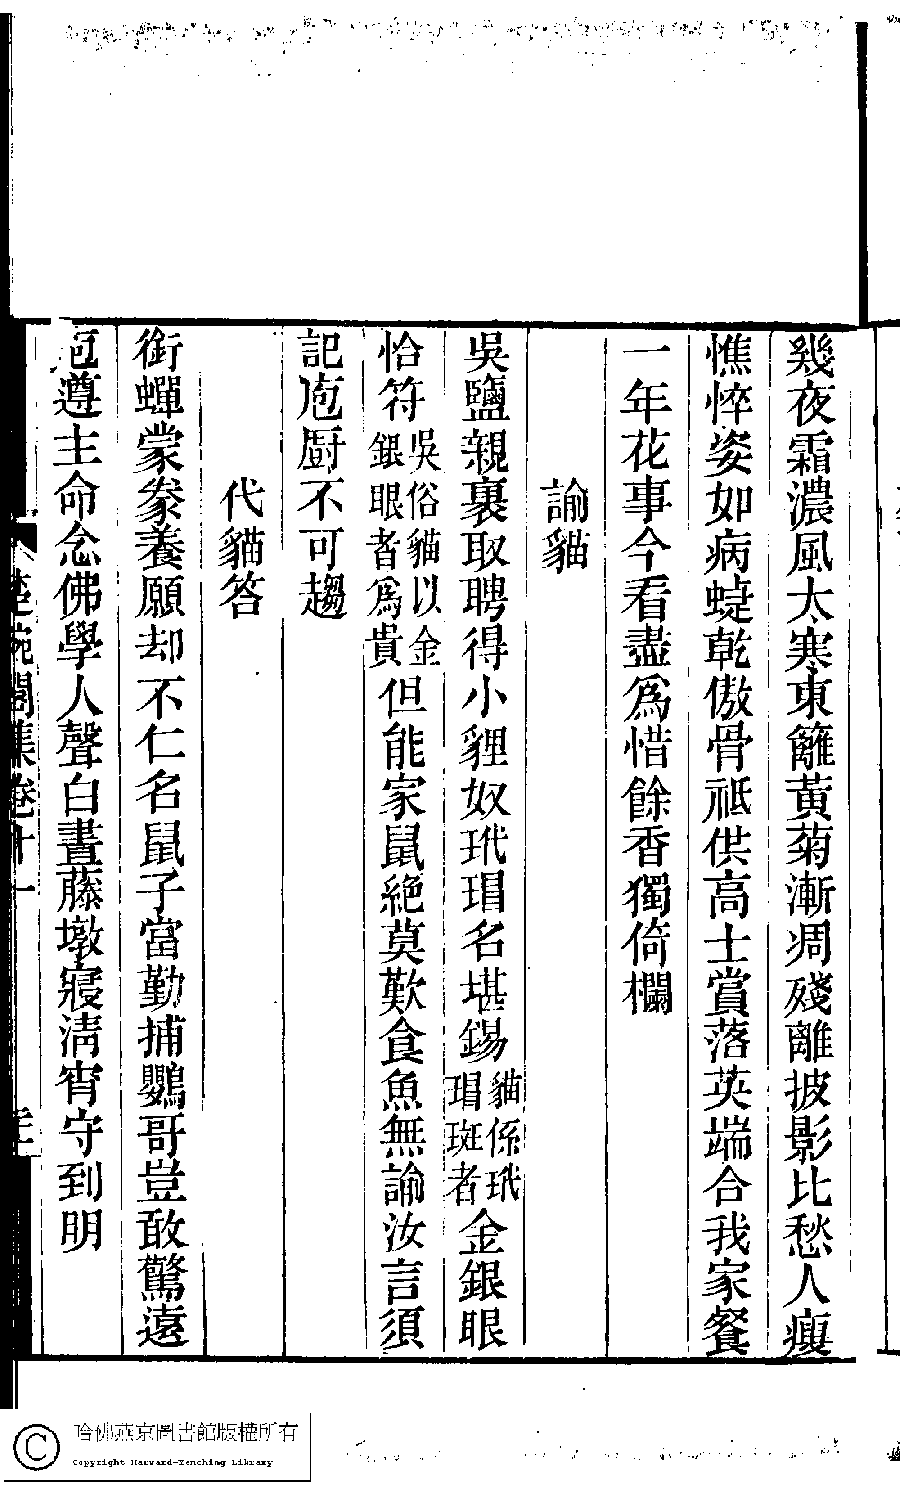 幾夜霜濃風太寒東籬黃菊漸凋殘離披影比愁人瘦
憔悴姿如病蜨乾傲骨祗供高士賞落英端合我家餐
一年花事今看盡爲惜餘香獨倚欄
諭貓
吳鹽親裹取聘得小貍奴玳瑁名堪錫貓係玳瑁斑者金銀眼
恰符吳俗貓以金銀眼者爲貴但能家鼠絕莫歎食魚無諭汝言須
記庖厨不可趨
代貓答
銜蟬蒙豢養願却不仁名鼠子當勤捕鸚哥豈敢驚遠
庖遵主命念佛學人聲白晝藤墩寢清宵守到明
閣集卷十一
哈佛燕京圖書館版權所有
Copyright Harvard-Yenching Library